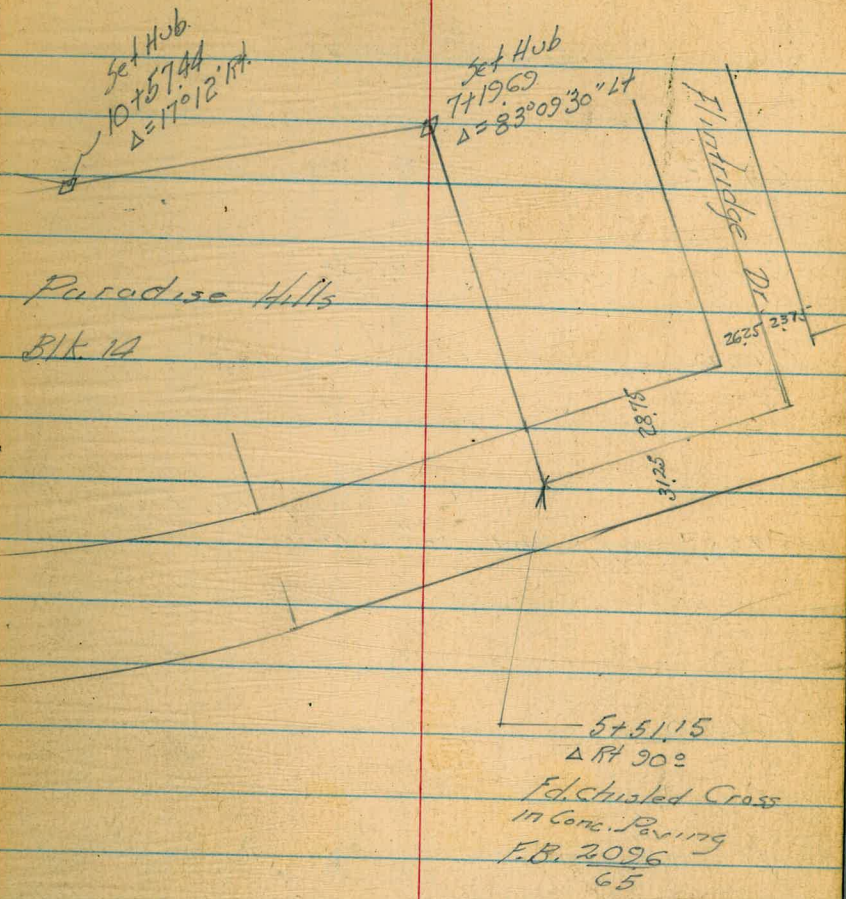 Set Hub.
10+57.44
Δ=17°12' Rt.
Set Hub
7+19.69
Δ=83°09'30" Lt
Flintridge Dr.
26.25 23.75
Paradise Hills
Blk. 14
28.75
31.25
5+51.15
Δ Rt 90°
Fd. Chisled Cross
in Conc. Paving
F.B. 2096
65